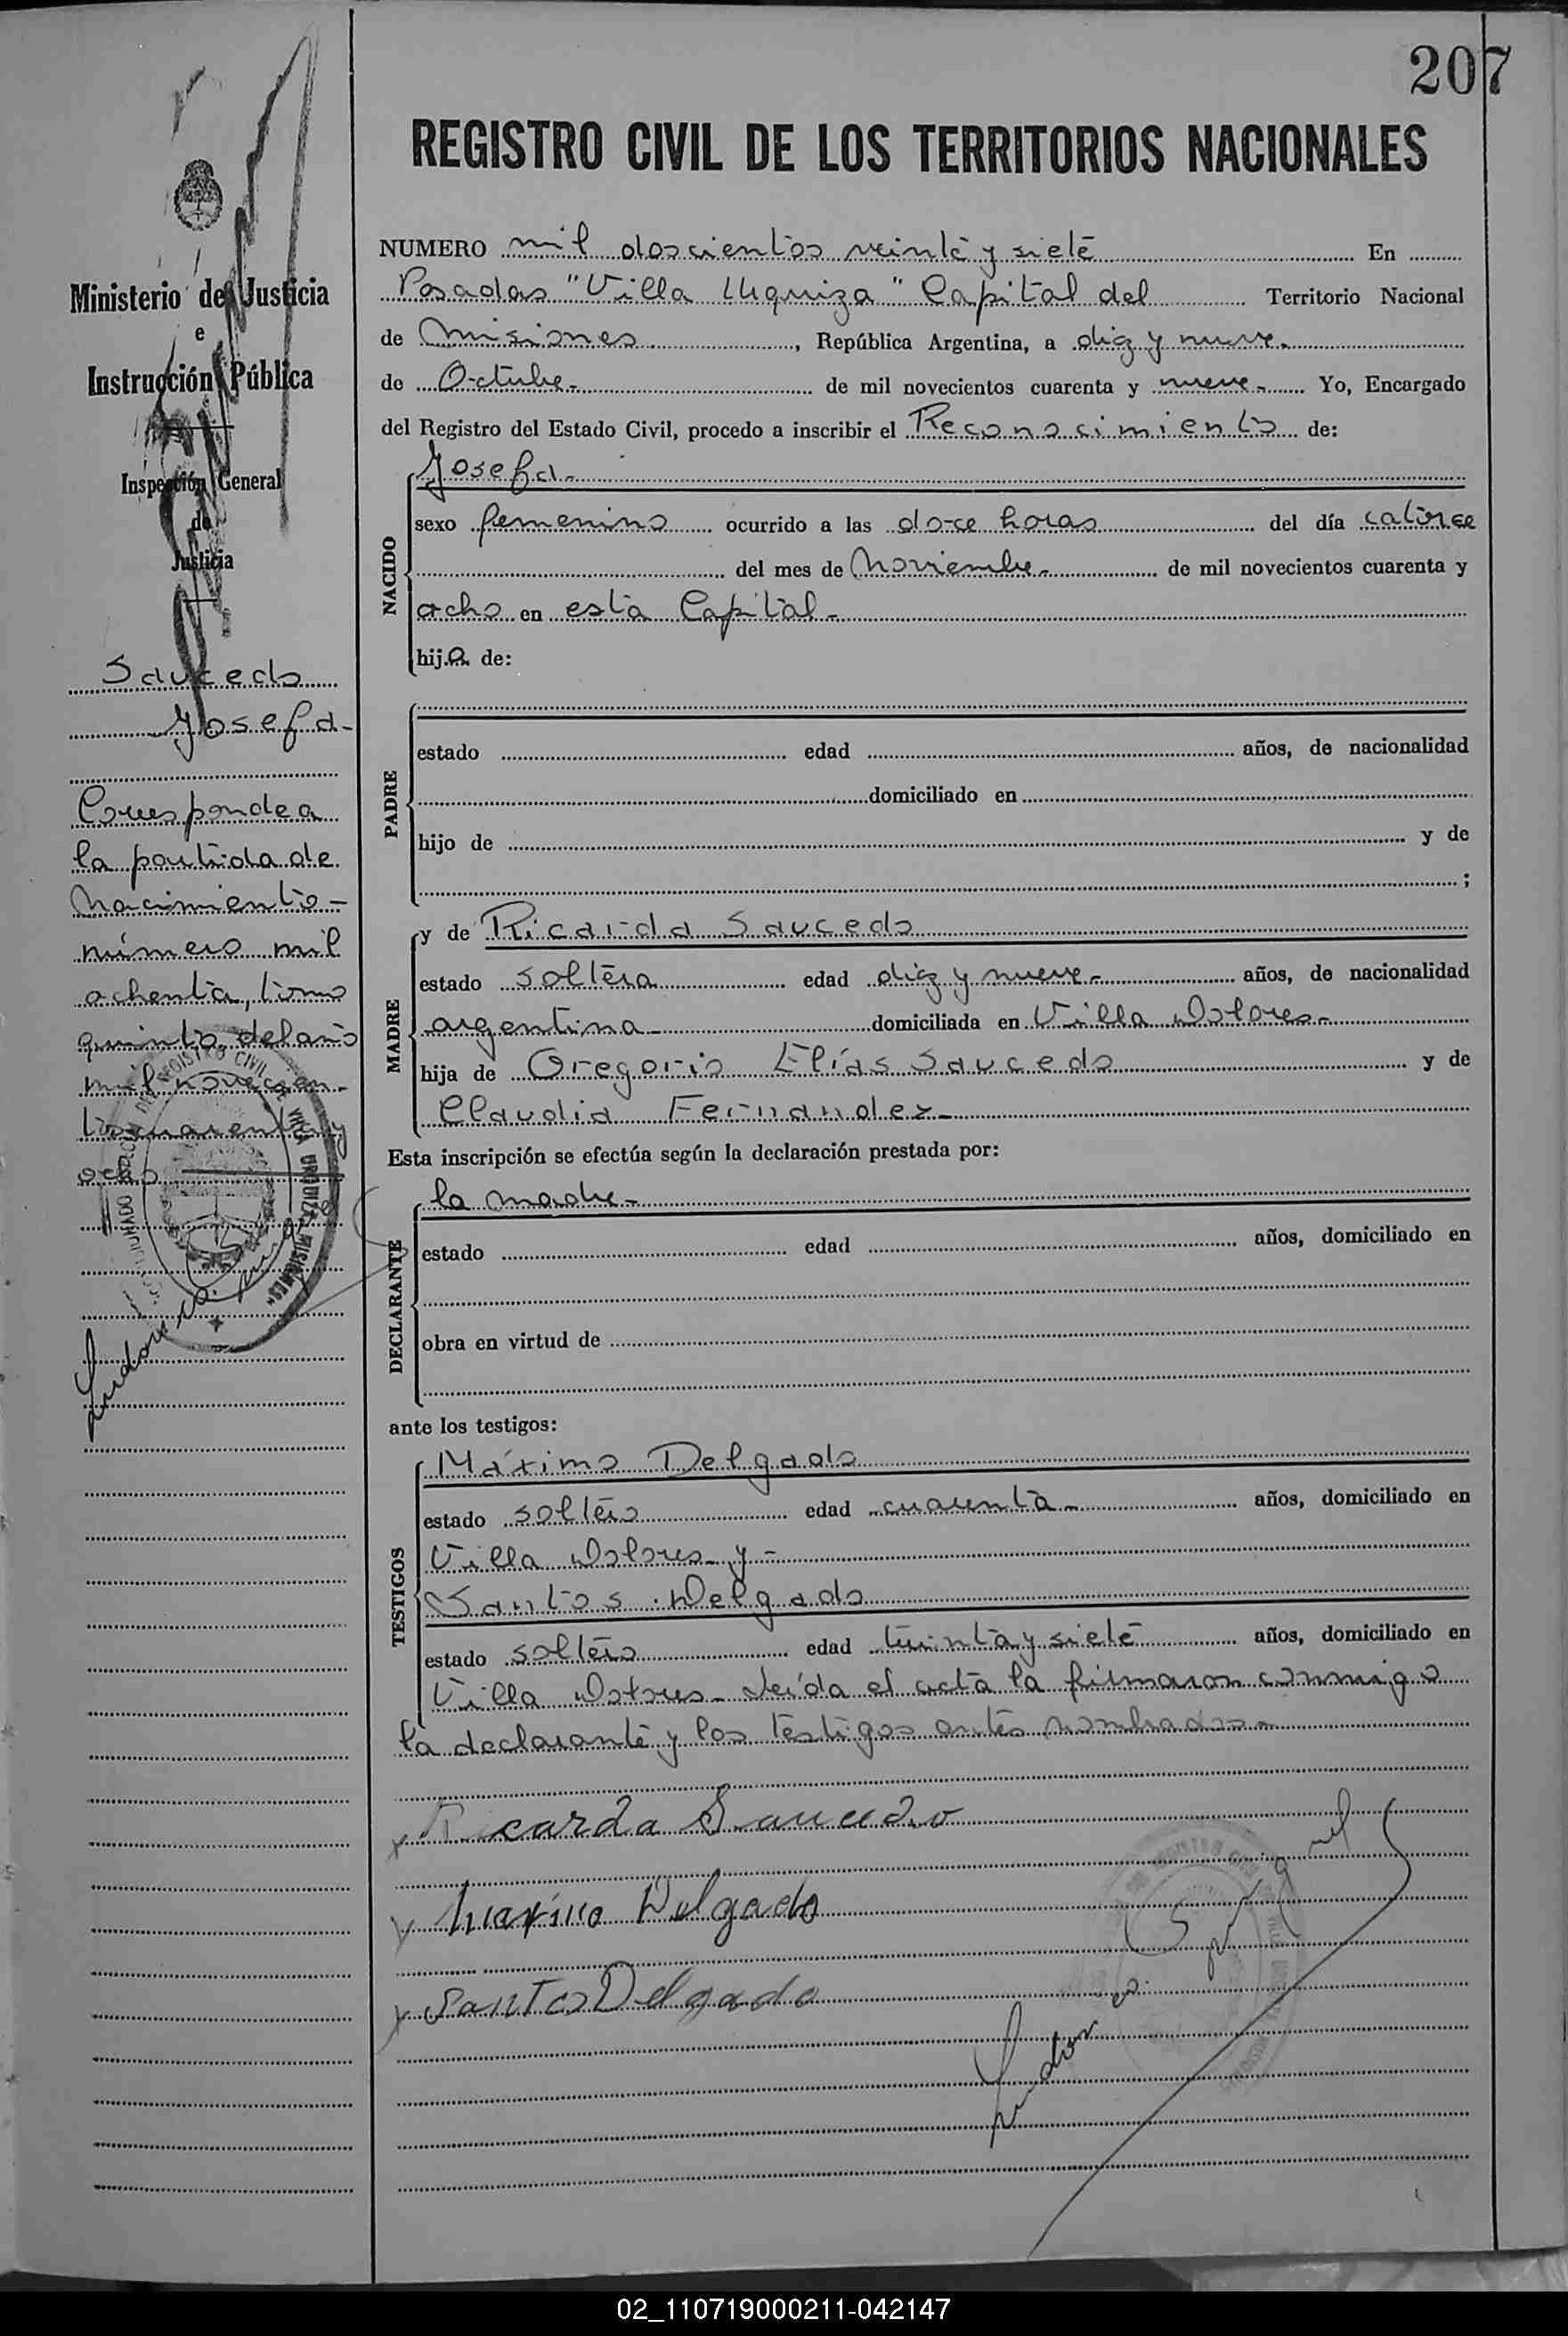 207
REGISTRO CIVIL DE LOS TERRITORIOS NACIONALES
Ministerio de Justicia
e
Instrucción Pública
Inspección General
de
Justicia
Saucedo
Josefa-
Corresponde a
la partida de
Nacimiento-
número mil
ochenta, tomo
quinto del año
mil novecien-
tos cuarenta y
ocho
NUMERO mil doscientos veinte y siete En
Posadas "Villa Urquiza" Capital del Territorio Nacional
de Misiones, República Argentina, a diez y nueve.
de Octubre- de mil novecientos cuarenta y nueve- Yo, Encargado
del Registro del Estado Civil, procedo a inscribir el Reconocimiento de:
NACIDO
Josefa-
sexo femenino ocurrido a las doce horas del día catorce
del mes de Noviembre- de mil novecientos cuarenta y
ocho en esta Capital-
hija de:
PADRE
estado edad años, de nacionalidad
domiciliado en
hijo de y de
;
MADRE
y de Ricarda Saucedo
estado soltera edad diez y nueve- años, de nacionalidad
argentina domiciliada en Villa Dolores-
hija de Gregorio Elías Saucedo y de
Claudia Fernandez-
Esta inscripción se efectúa según la declaración prestada por:
DECLARANTE
la madre-
estado edad años, domiciliado en
obra en virtud de
ante los testigos:
TESTIGOS
Máximo Delgado
estado soltero edad cuarenta- años, domiciliado en
Villa Dolores y-
Santos Delgado
estado soltero edad treinta y siete años, domiciliado en
Villa Dolores- Leída el acta la firmaron conmigo
la declarante y los testigos antes nombrados-
x Ricarda Saucedo
x Maximo Delgado
x Santos Delgado
02_110719000211-042147